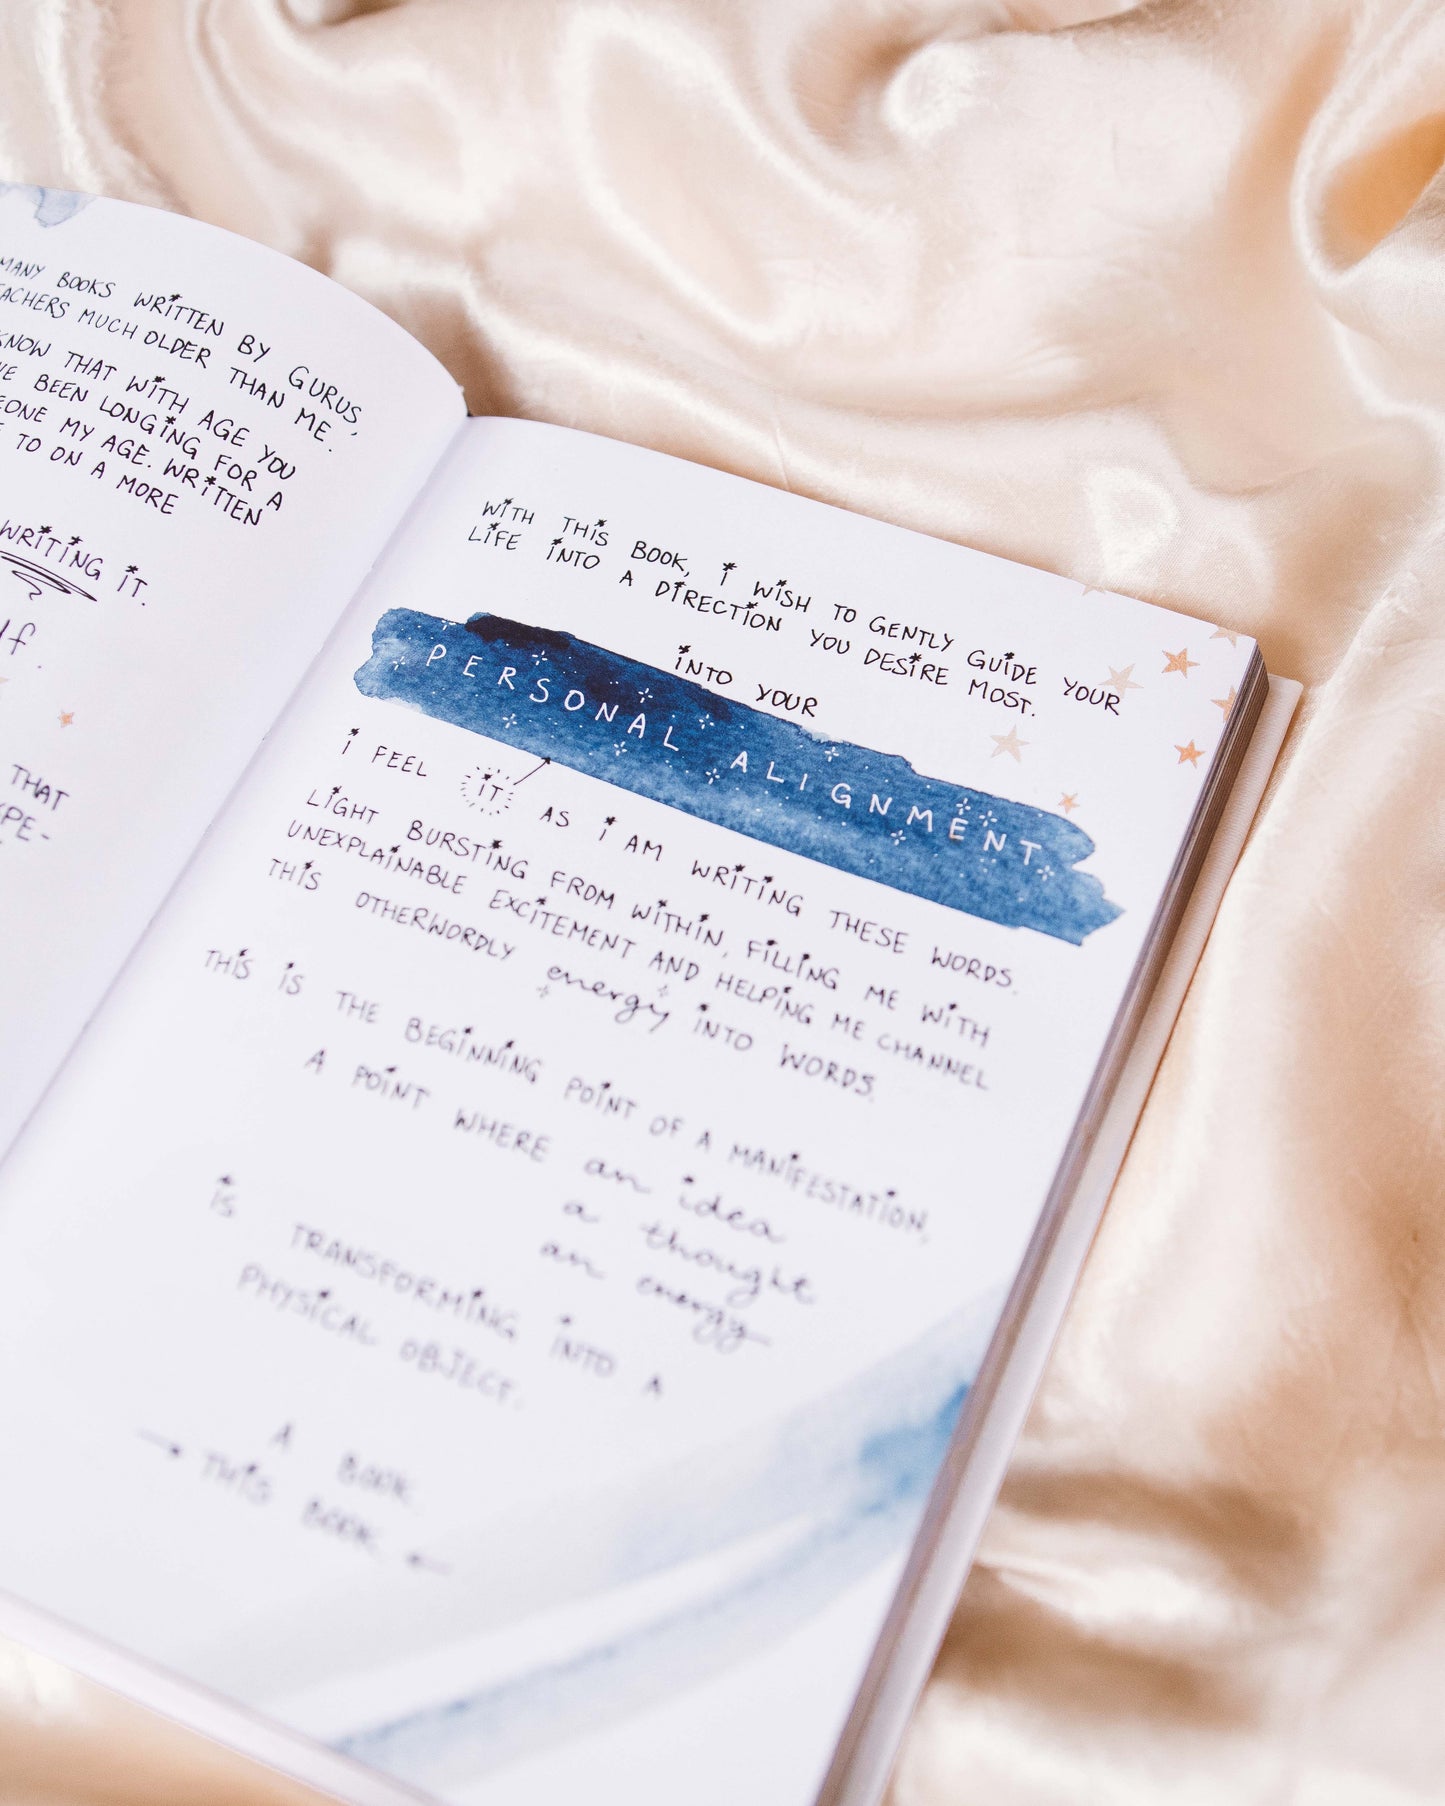 MANY BOOKS WRITTEN BY GURUS,
TEACHERS MUCH OLDER THAN ME.
KNOW THAT WITH AGE YOU
BEEN LONGING FOR A
MY AGE. WRITTEN
TO ON A MORE
WRITING IT.
THAT
WITH THIS BOOK, I WISH TO GENTLY GUIDE YOUR
LIFE INTO A DIRECTION YOU DESIRE MOST.
INTO YOUR
PERSONAL ALIGNMENT
I FEEL IT AS I AM WRITING THESE WORDS.
LIGHT BURSTING FROM WITHIN, FILLING ME WITH
UNEXPLAINABLE EXCITEMENT AND HELPING ME CHANNEL
THIS OTHERWORDLY energy INTO WORDS.
THIS IS THE BEGINNING POINT OF A MANIFESTATION,
A POINT WHERE an idea
a thought
an energy
IS TRANSFORMING INTO A
PHYSICAL OBJECT.
A BOOK.
THIS BOOK.